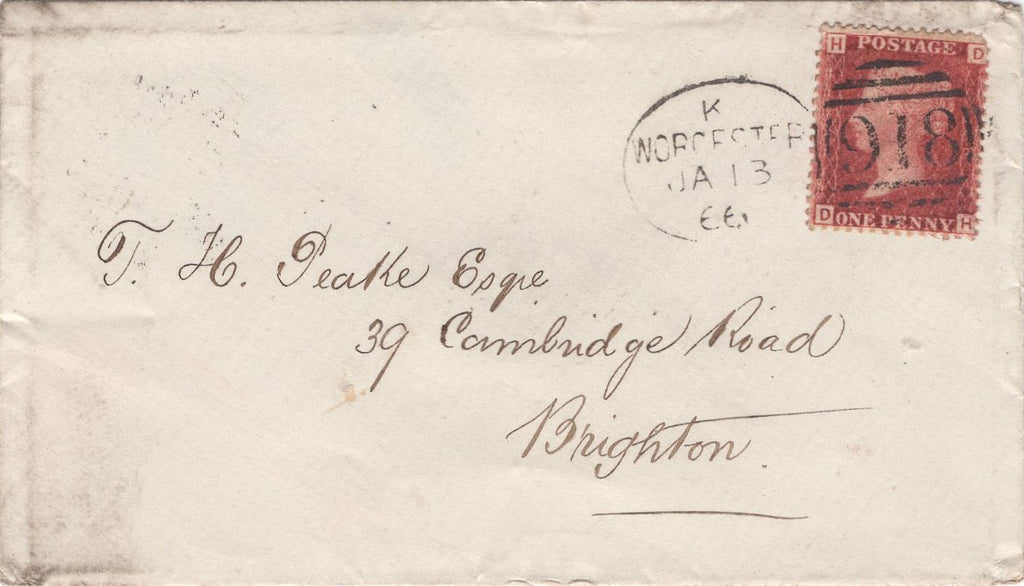 H POSTAGE D
K
WORCESTER
JA 13
66
918
D ONE PENNY H
T. H. Peake Esqre
39 Cambridge Road
Brighton.